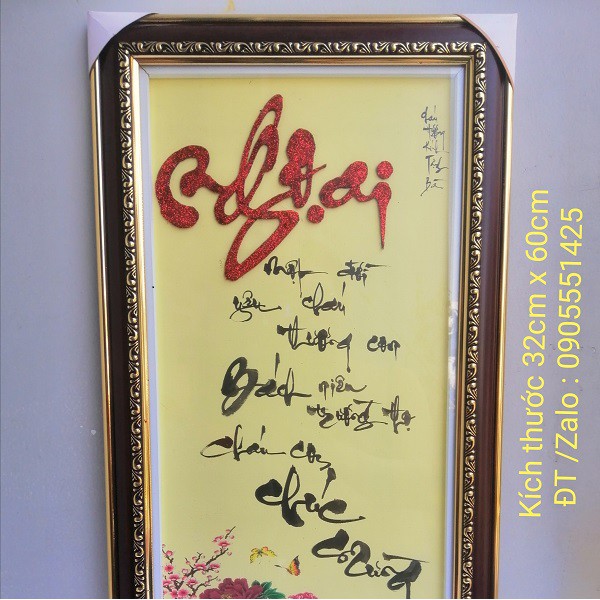 Ngoại
cháu
tặng
kính
Tặng
Bà
một đời
yêu cháu
thương con
Bách niên
trường thọ
cháu con
chúc
Kích thước 32cm x 60cm
ĐT /Zalo : 0905551425